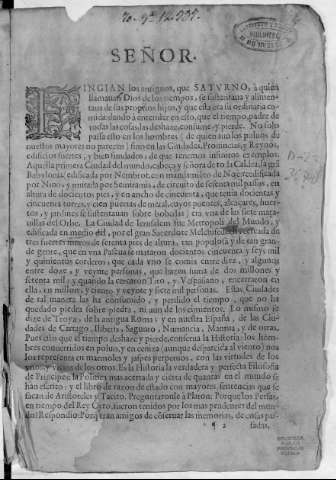 SEÑOR.
FINGIAN los antiguos, que SATVRNO, à quien
llamauan Dios de los tiempos, se sustentaua y alimen-
taua de sus proprios hijos, y que esta era su ordinaria co-
mida: dando à entender en esto, que el tiempo, padre de
todas las cosas, las deshaze, consume, y pierde. No solo
passa esto en los hombres
nuestros mayores no parecen; sino en las Ciudades, Prouincias, y Reynos,
edificios fuertes, y bien fundados; de que tenemos infinitos exemplos.
Aquella primera Ciudad del mundo, cabeça, y señora de toda Caldea, la grã
Babylonia, edificada por Nembrot, con
por Nino, y murada por Semiramis, de circuito de sesenta mil passos, en
altura de docientos pies, y en ancho de cincuenta, que tenia docientas y
cincuenta torres, y cien puertas de metal, cuyos puentes, alcaçares, huer-
tos, y pensiles se sustentauan sobre bobedas; era vna de las siete mara-
uillas del Orbe. La Ciudad de Ierusalem fue Metropoli del Mundo, y
edificada en medio del, por el gran Sacerdote Melchisedech, y cercada de
tres fuertes muros de sesenta pies de altura, tan populosa y de tan gran-
de gente, que en vna Pascua se mataron docientos cincuenta y seys mil
y quinientos corderos, que cada vno se comia entre diez, y algunas
entre doze, y veynte personas, que hazen suma de dos millones y
setenta mil; y quando la cercaron Tito, y Vespasiano, encerraron en
ella, vn millon, y ciento, y veynte y siete mil personas. Estas Ciudades
de tal manera las ha consumido, y perdido el tiempo, que no ha
quedado piedra sobre piedra, ni aun de los cimientos. Lo mismo se
dize de Troya, de la antigua Roma; y en nuestra España, de las Ciu-
dades de Cartago, Iliberis, Sagunto, Numancia, Mantua, y de otras.
Pues esto que el tiempo deshaze y pierde, conserua la Historia: los hom-
bres conuertidos en poluo, y en ceniza (aunque desparcida al viento) nos
los representa en marmoles y jaspes perpetuos, con las virtudes de los
vnos, y vicios de los otros. Es la Historia la verdadera y perfecta Filosofia
de Principes; la Politica mas acertada y cierta de quantas en el mundo se
han escrito; y el libro de razon de estado con mayores sentencias que se
sacan de Aristoteles y Tacito. Preguntaronle a Platon: Porque los Persas,
en tiempo del Rey Cyro, fueron tenidos por los mas prudentes del mun-
do? Respondio: Porq̃ eran amigos de cõseruar las memorias, de cosas pas-
¶ 2 sadas,
BIBLIOTECA